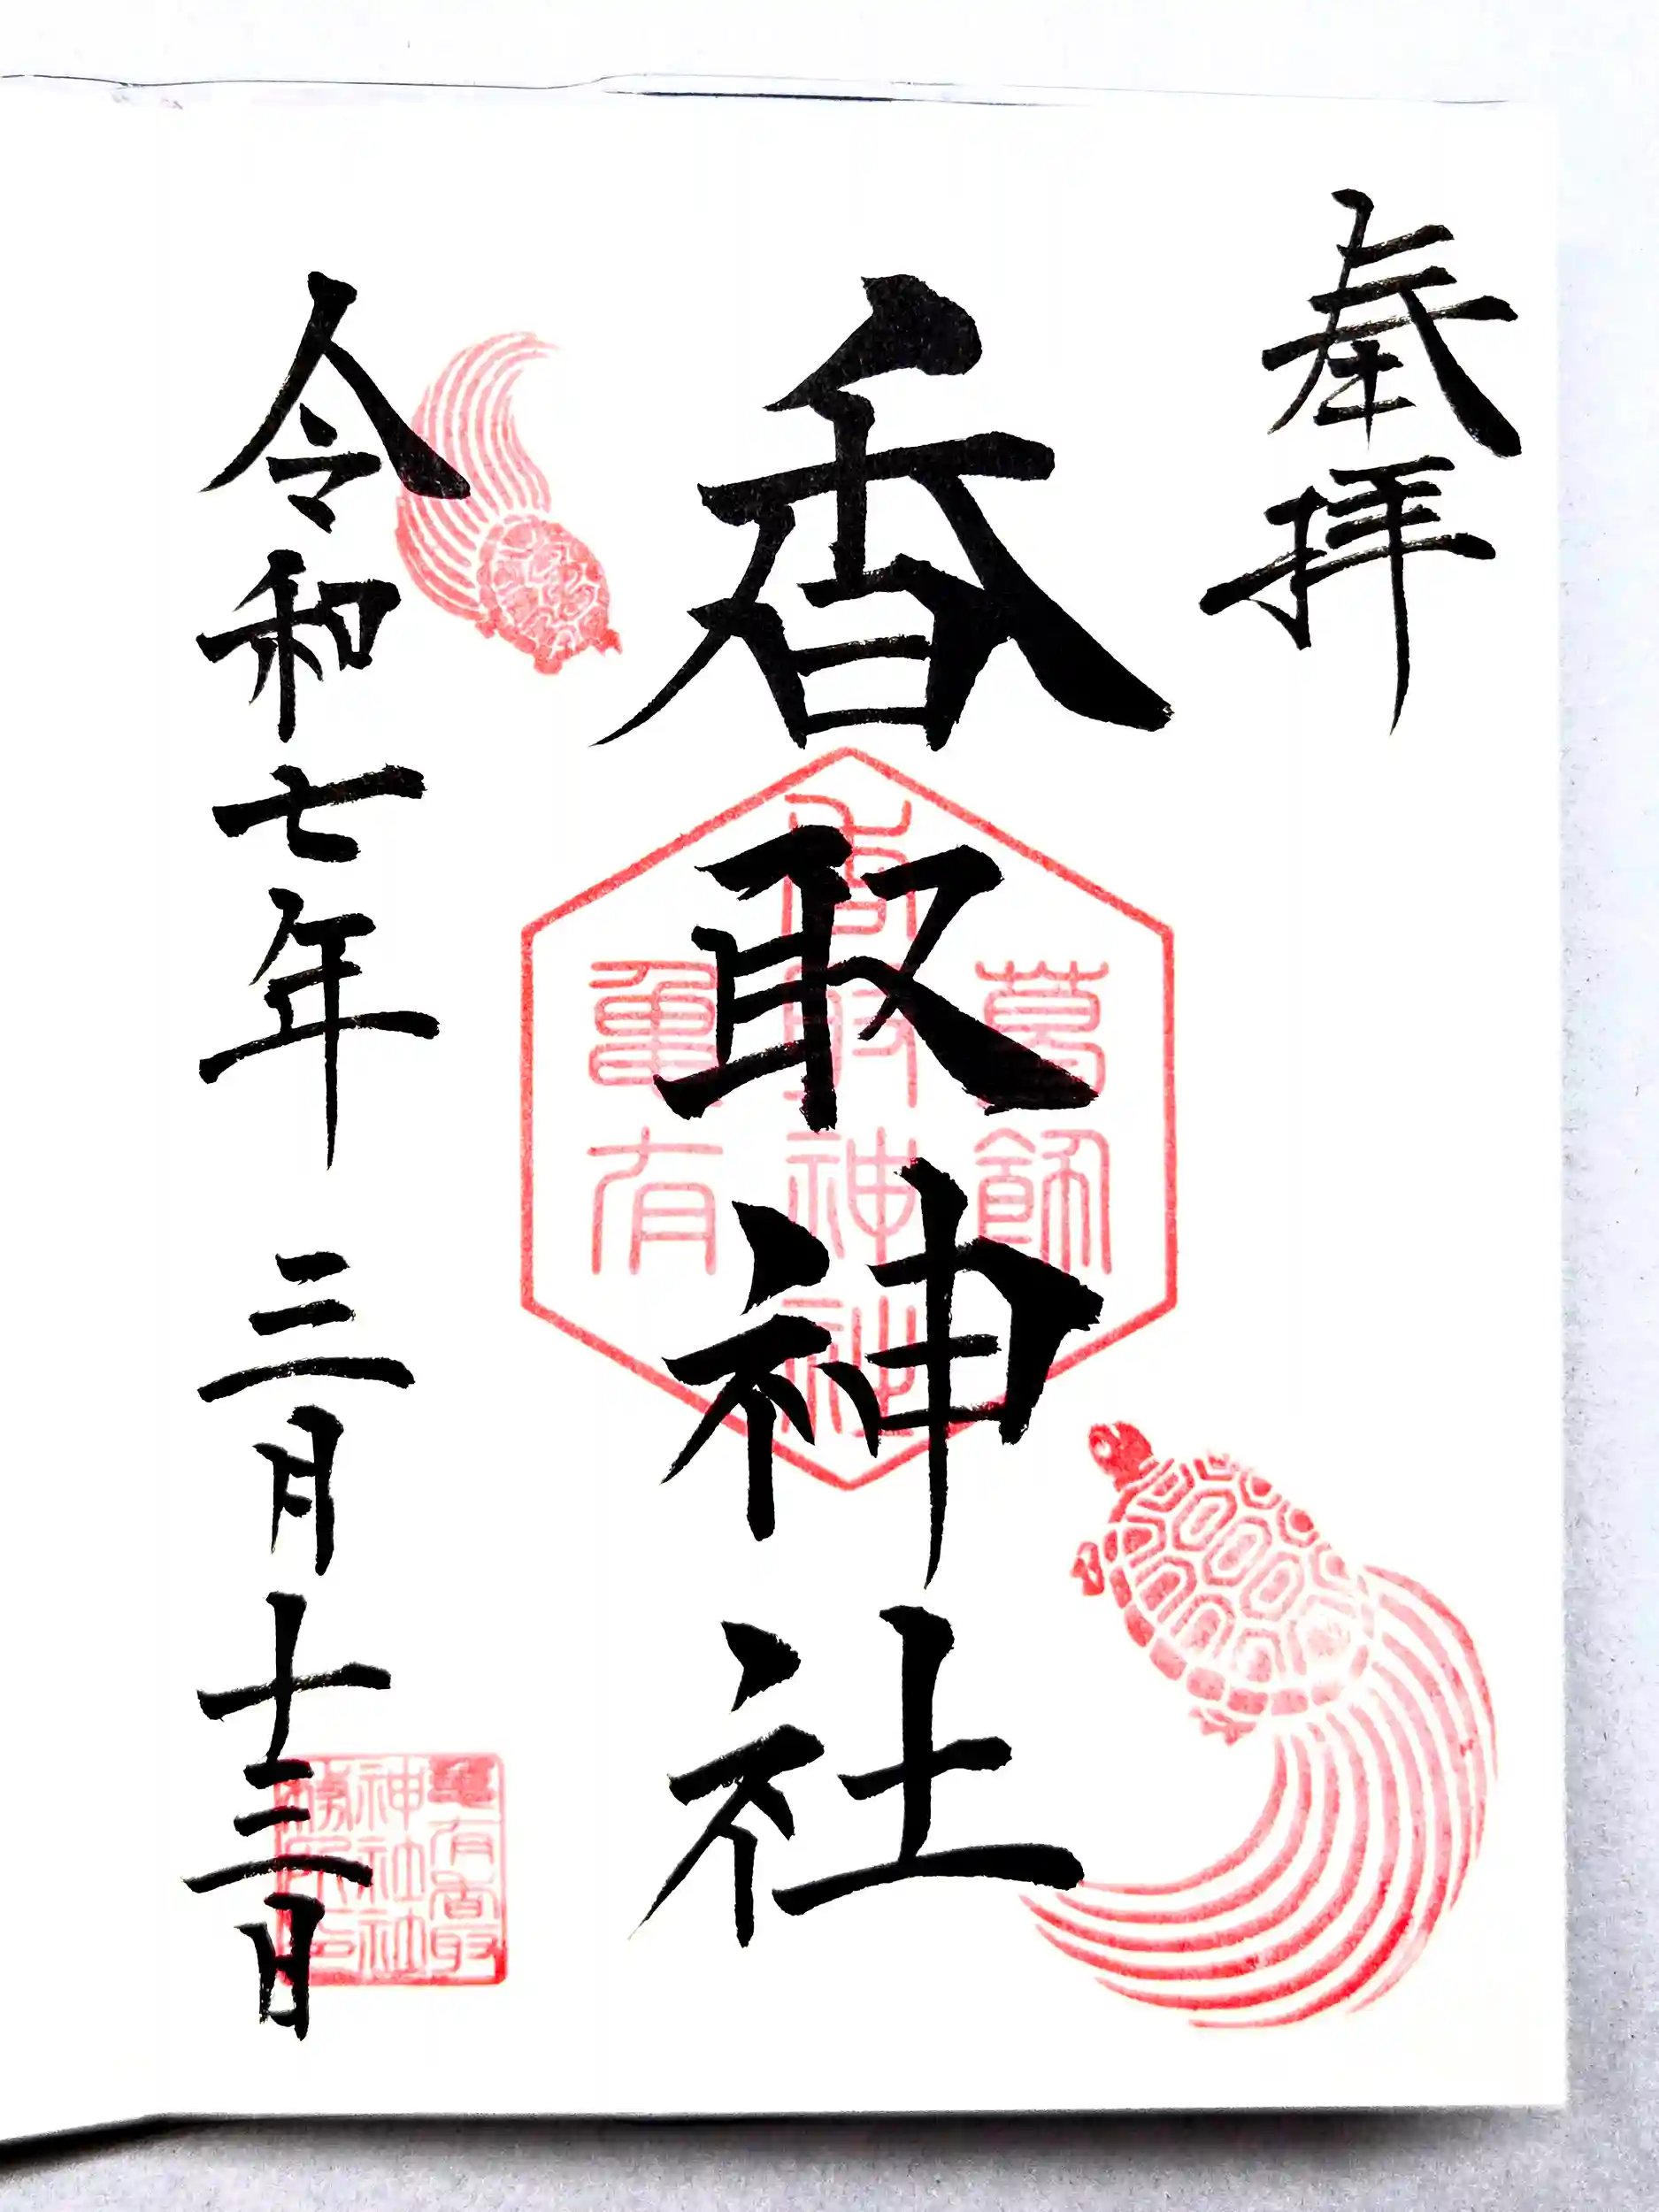 奉拝
香取神社
令和七年 三月十三日
葛飾
香取神社
亀有
亀有香取
神社社